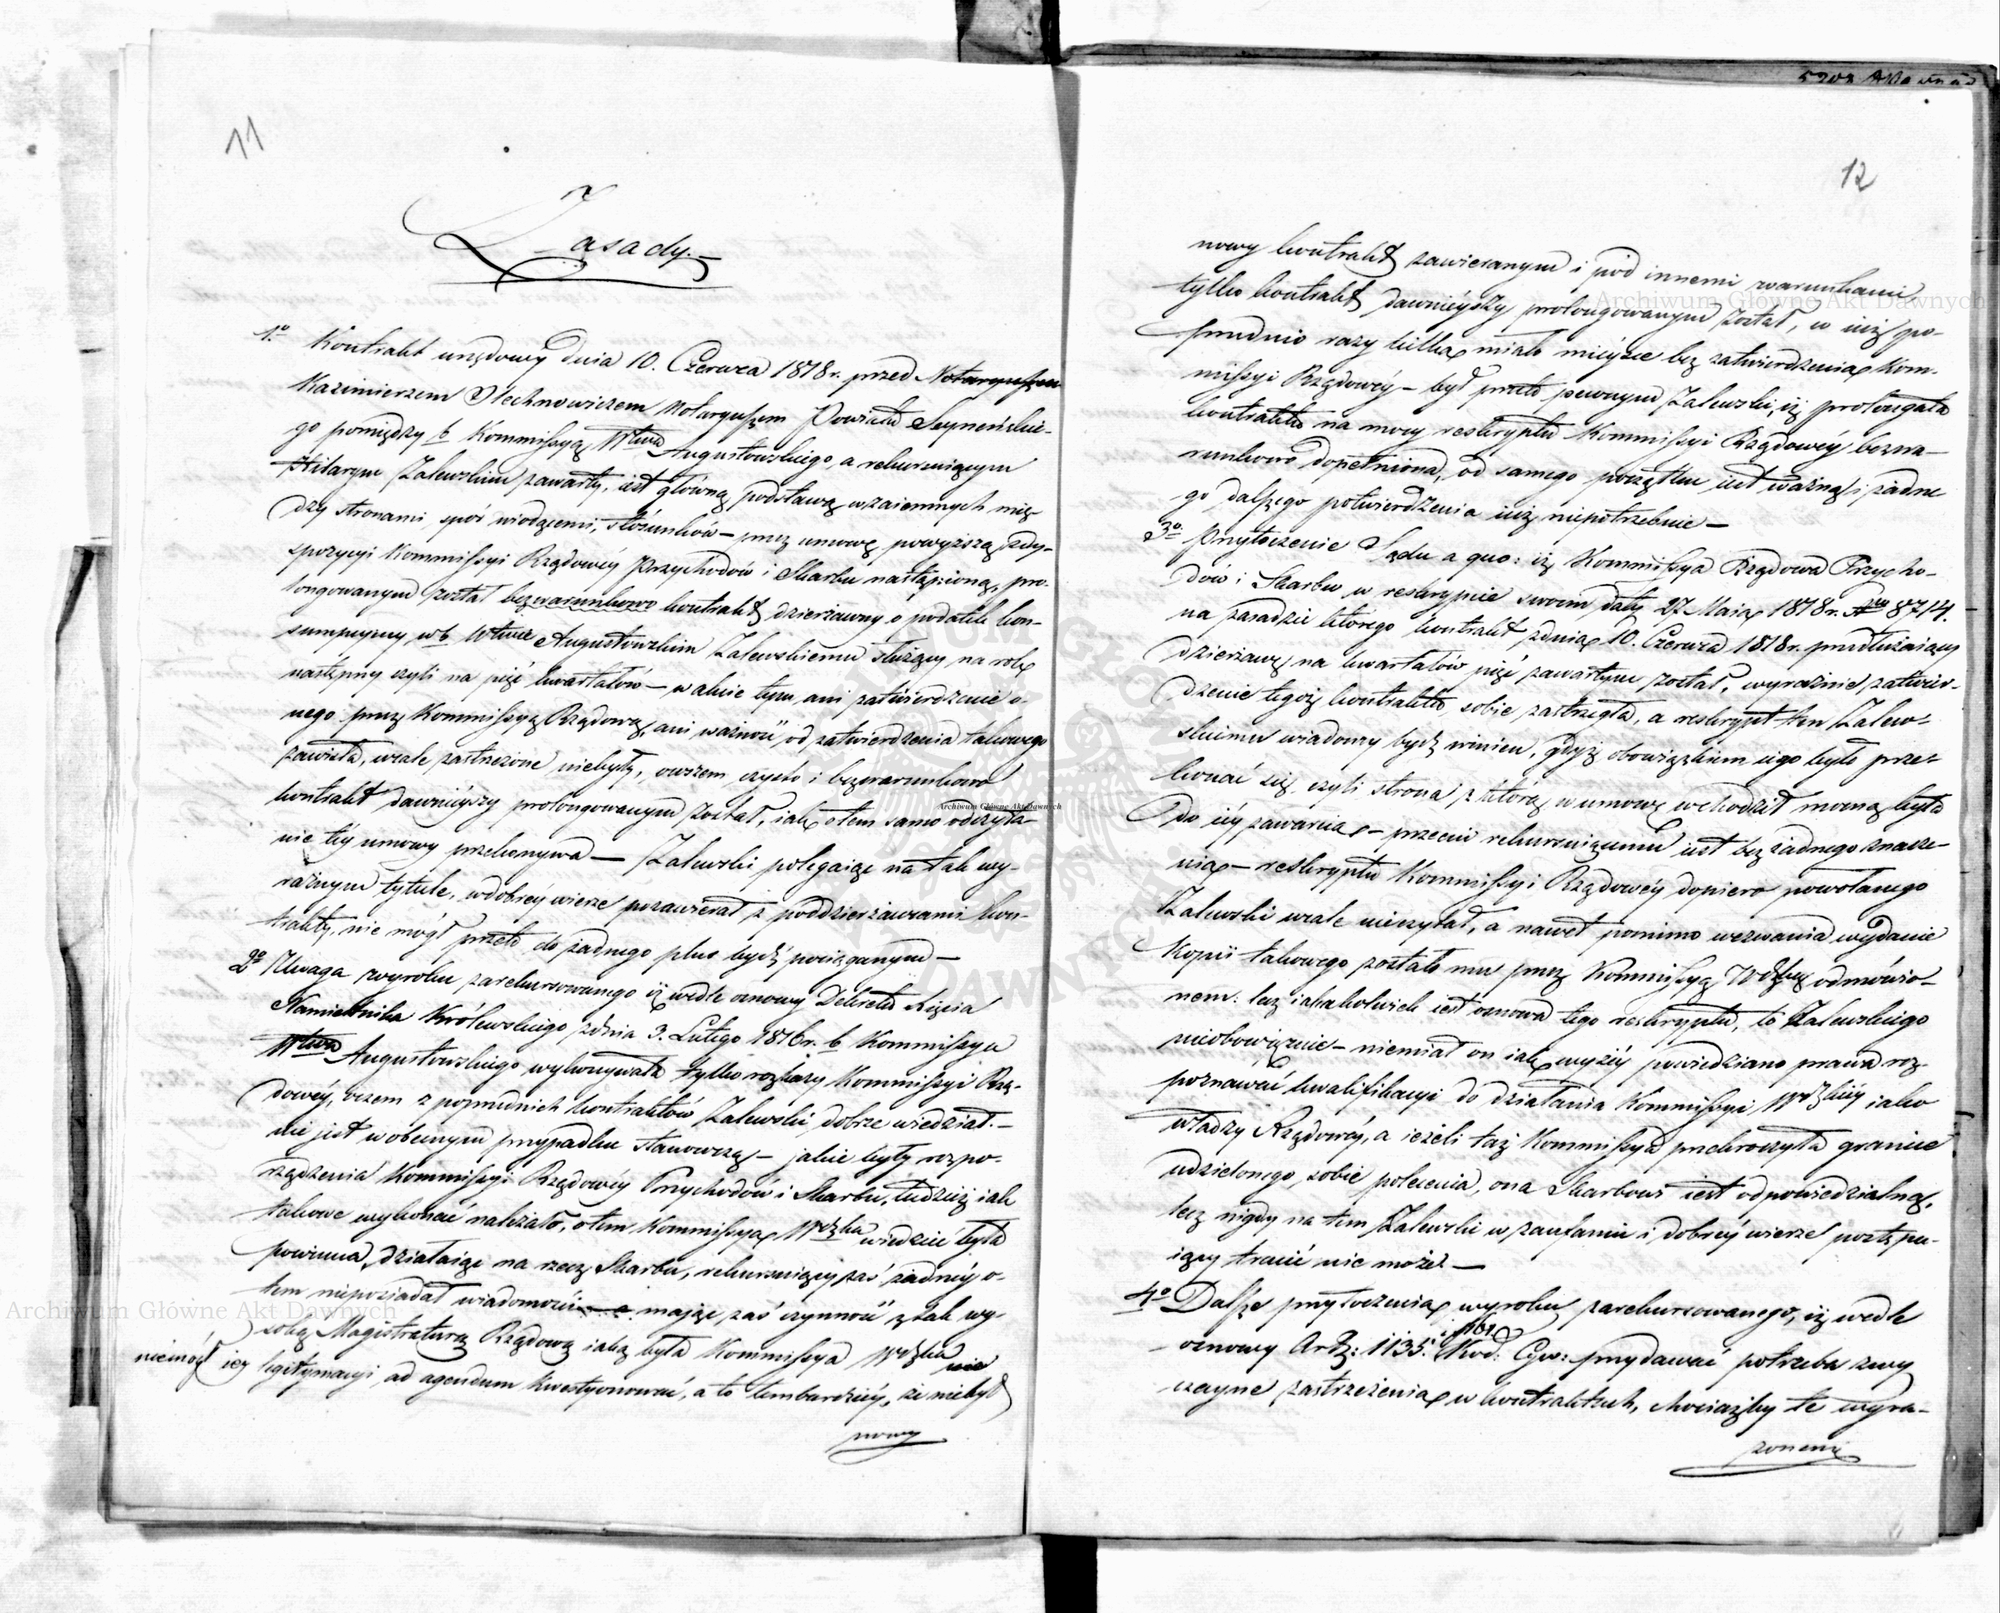 11
Zasady.
1o. Kontrakt urzędowy dnia 10. Czerwca 1818r. przed
Kazimierzem Stechnowiczem Notaryuszem Powiatu Seyneńskie-
go pomiędzy b. Kommissyą Wtwa Augustowskiego, a rekursuiącym
Hilarym Zalewskim zawarty, iest główną podstawą wzaiemnych mię-
dzy stronami, spór wiodącemi, stósunków – przez umowę powyższą z dy-
spozycyi Kommissyi Rządowéy Przychodów i Skarbu nastąpioną, pro-
longowanym został bezwarunkowo kontrakt dzierżawny o podatek kon-
sumpcyiny w b. Wtwie Augustowskim Zalewskiemu służący na rok
następny czyli na pięć kwartałów – w akcie tym ani zatwierdzenie o-
nego przez Kommissyą Rządową, ani ważność od zatwierdzenia takowego
zawisła, wcale zastrzeżone niebyły, owszem czysto i bezwarunkowo
kontrakt dawniéyszy prolongowanym został, iak o tem samo odczyta-
nie téy umowy przekonywa – Zalewski polegaiąc na tak wy-
raźnym tytule, w dobréy wierze pozawierał z poddzierżawcami kon-
trakty, nie mógł przeto do żadnego plus bydź pociąganym –
2o Uwaga wyroku zarekursowanego iż wedle osnowy Dekretu Xięcia
Namiestnika Królewskiego z dnia 3. Lutego 1816r. b. Kommissya
Wtwa Augustowskiego wykonywała tylko rozkazy Kommissyi Rzą-
dowéy, oczem z poprzednich kontraktów Zalewski dobrze wiedział. –
nie jest w obecnym przypadku stanowczą – jakie były rozpo-
rządzenia Kommissyi Rządowéy Przychodów i Skarbu, tudzież iak
takowe wykonać należało, o tem Kommissya Wdzka wiedzieć była
powinna, działaiąc na rzecz Skarbu, rekursuiący zaś żadnéy o-
tem nieposiadał wiadomości – mając zaś czynność z tak wy-
soką Magistraturą Rządową iaką była Kommissya Wdzka
niemógł iéy legitymacyi, ad agendum kwestyonować, a to tembardziéy, że niebył
nowy
12
nowy kontrakt zawieranym i pod innemi warunkami
tylko kontrakt dawniéyszy prolongowanym został, w iuż po-
przednio razy kilka miało mieysce bez zatwierdzenia Kom-
missyi Rządowéy – był przeto pewnym Zalewski, iż prolongata
kontraktu na mocy reskryptu Kommissyi Rządowéy bezwa-
runkowo dopełniona, od samego początku iest ważną i żadne
go dalszego potwierdzenia iuż niepotrzebuie –
3o. Przytoczenie Sądu a quo: iż Kommissya Rządowa Przycho-
dów i Skarbu w reskrypcie swoim daty 27 Maia 1818r. Nro 8714.
na zasadzie którego kontrakt z dnia 10. Czerwca 1818r. przedłużaiący
dzierżawę na kwartałów pięć zawartym został, wyraźnie zatwier-
dzenie tegoż kontraktu, sobie zastrzegła, a reskrypt ten Zalew-
skiemu wiadomy bydź winien, gdyż obowiązkiem iego było prze-
konać się, czyli strona z którą w umowę wchodził mocną była
do iéy zawarcia, – przeciw rekursuiącemu iest bez żadnego znacze-
nia – reskryptu Kommissyi Rządowéy dopiero powołanego
Zalewski wcale nieczytał, a nawet pomimo wezwania wydanie
Kopii takowego zostało mu przez Kommissyą Wdzką odmówio-
nem: lecz iakakolwiek iest osnowa tego reskryptu, to Zalewskiego
nieobowiązuie – niemiał on iak wyżéy powiedziano prawa roz-
poznawać kwalifikacyi do działania Kommissyi Wdzkiéy iako
władzy Rządowéy, a ieżeli taż Kommissya przekroczyła granice
udzielonego sobie polecenia, ona Skarbowi iest odpowiedzialną,
lecz nigdy na tem Zalewski w zaufaniu i dobréy wierze postępu-
iący tracić nie może. –
4o Dalsze przytoczenia, wyroku zarekursowanego, iż wedle
osnowy Art: 1135. Kod: Cyw: przydawać potrzeba zwy
czayne zastrzeżenia w kontraktach, chociażby te wyra-
zonemi
Archiwum Główne Akt Dawnych
Archiwum Główne Akt Dawnych
Archiwum Główne Akt Dawnych